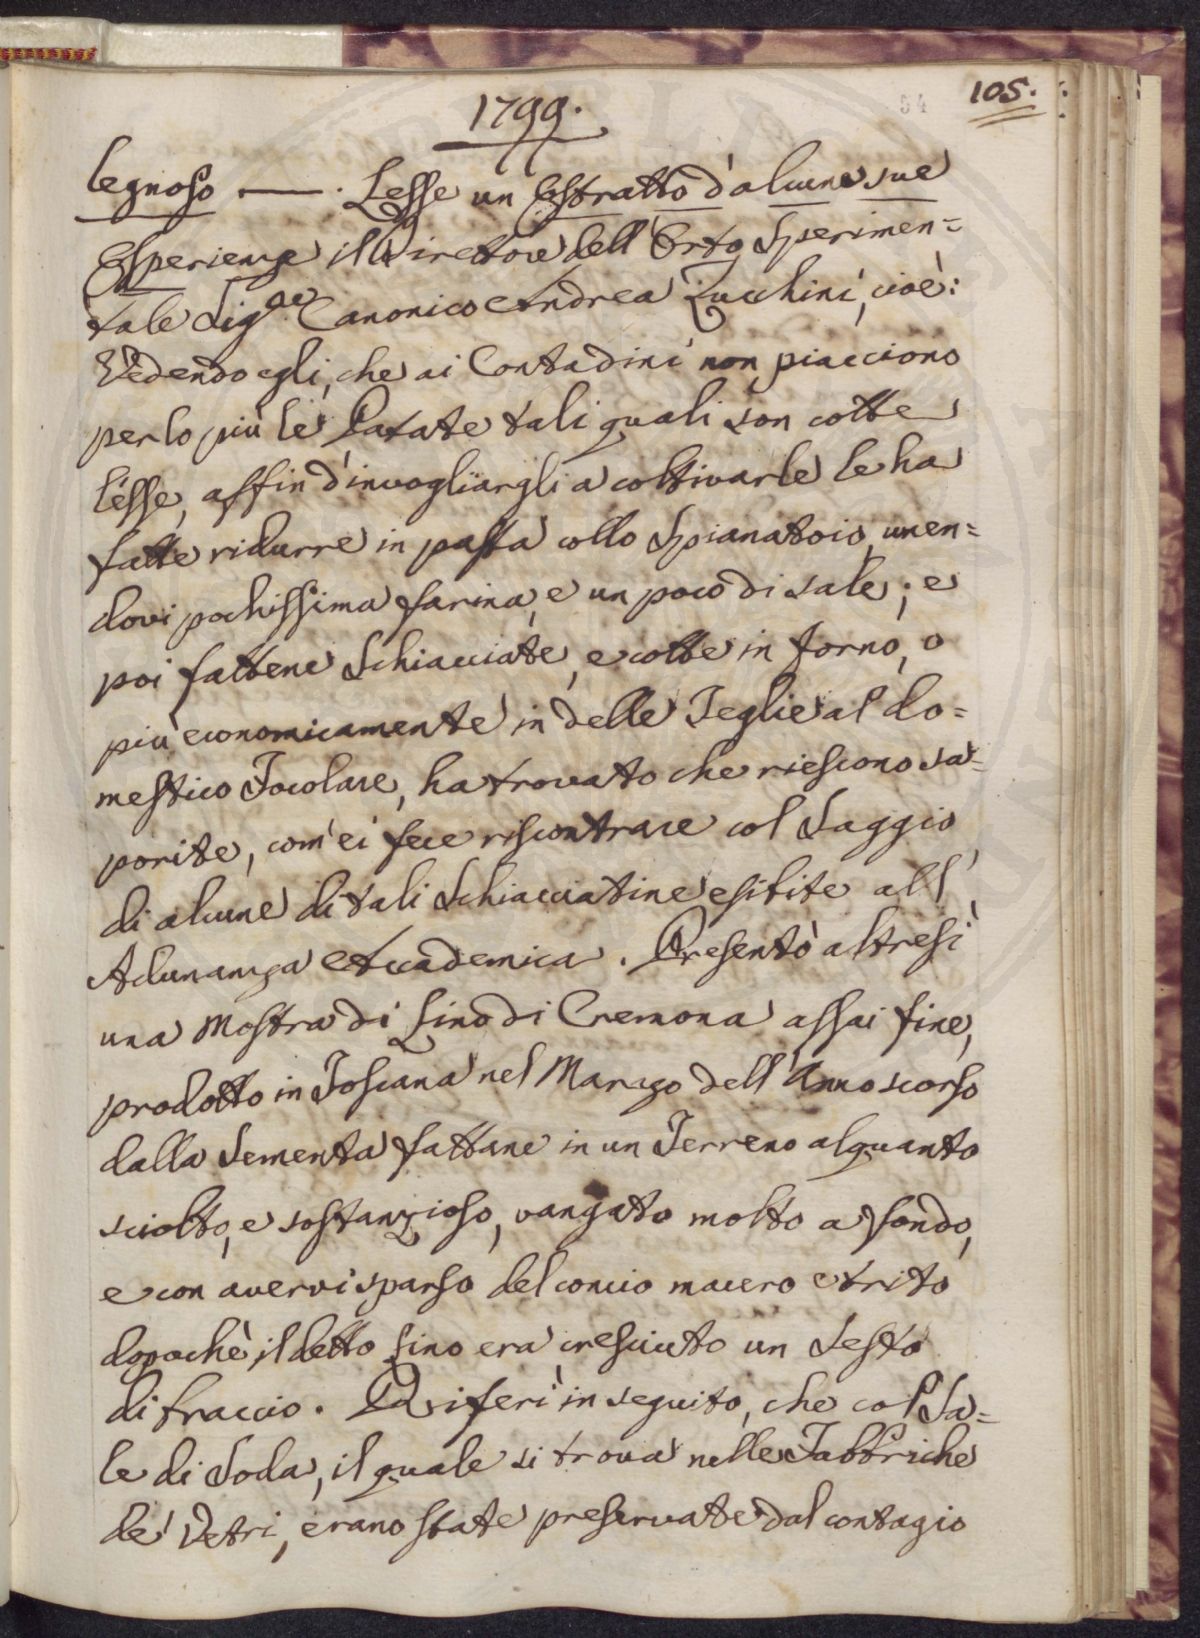 1799.
54
105.
legnoso ——. Lesse un Estratto d'alcune sue
Esperienze il Direttore dell'Orto Sperimen=
tale Sig.re Canonico Andrea Zucchini, cioè:
Vedendo egli, che ai Contadini non piacciono
per lo più le Patate tali quali son cotte
lesse, affin d'invogliargli a coltivarle le ha
fatte ridurre in pasta collo Spianatoio, unen=
dovi pochissima farina, e un poco di sale; e
poi fattene Schiacciate, e cotte in forno, o
più economicamente in delle Teglie al do=
mestico Focolare, ha trovato che riescono sa=
porite, com'ei fece riscontrare col Saggio
di alcune di tali Schiacciatine esibite all'
Adunanza Accademica. Presentò altresì
una Mostra di Lino di Cremona assai fine,
prodotto in Toscana nel Marzo dell'Anno scorso
dalla Sementa fattane in un Terreno alquanto
sciolto, e sostanzioso, vangato molto a fondo,
e con avervi sparso del concio macero e trito
dopochè il detto Lino era cresciuto un Sesto
di braccio. Riferì in seguito, che col Sa=
le di Soda, il quale si trova nelle Fabbriche
de' Vetri, erano state preservate dal contagio